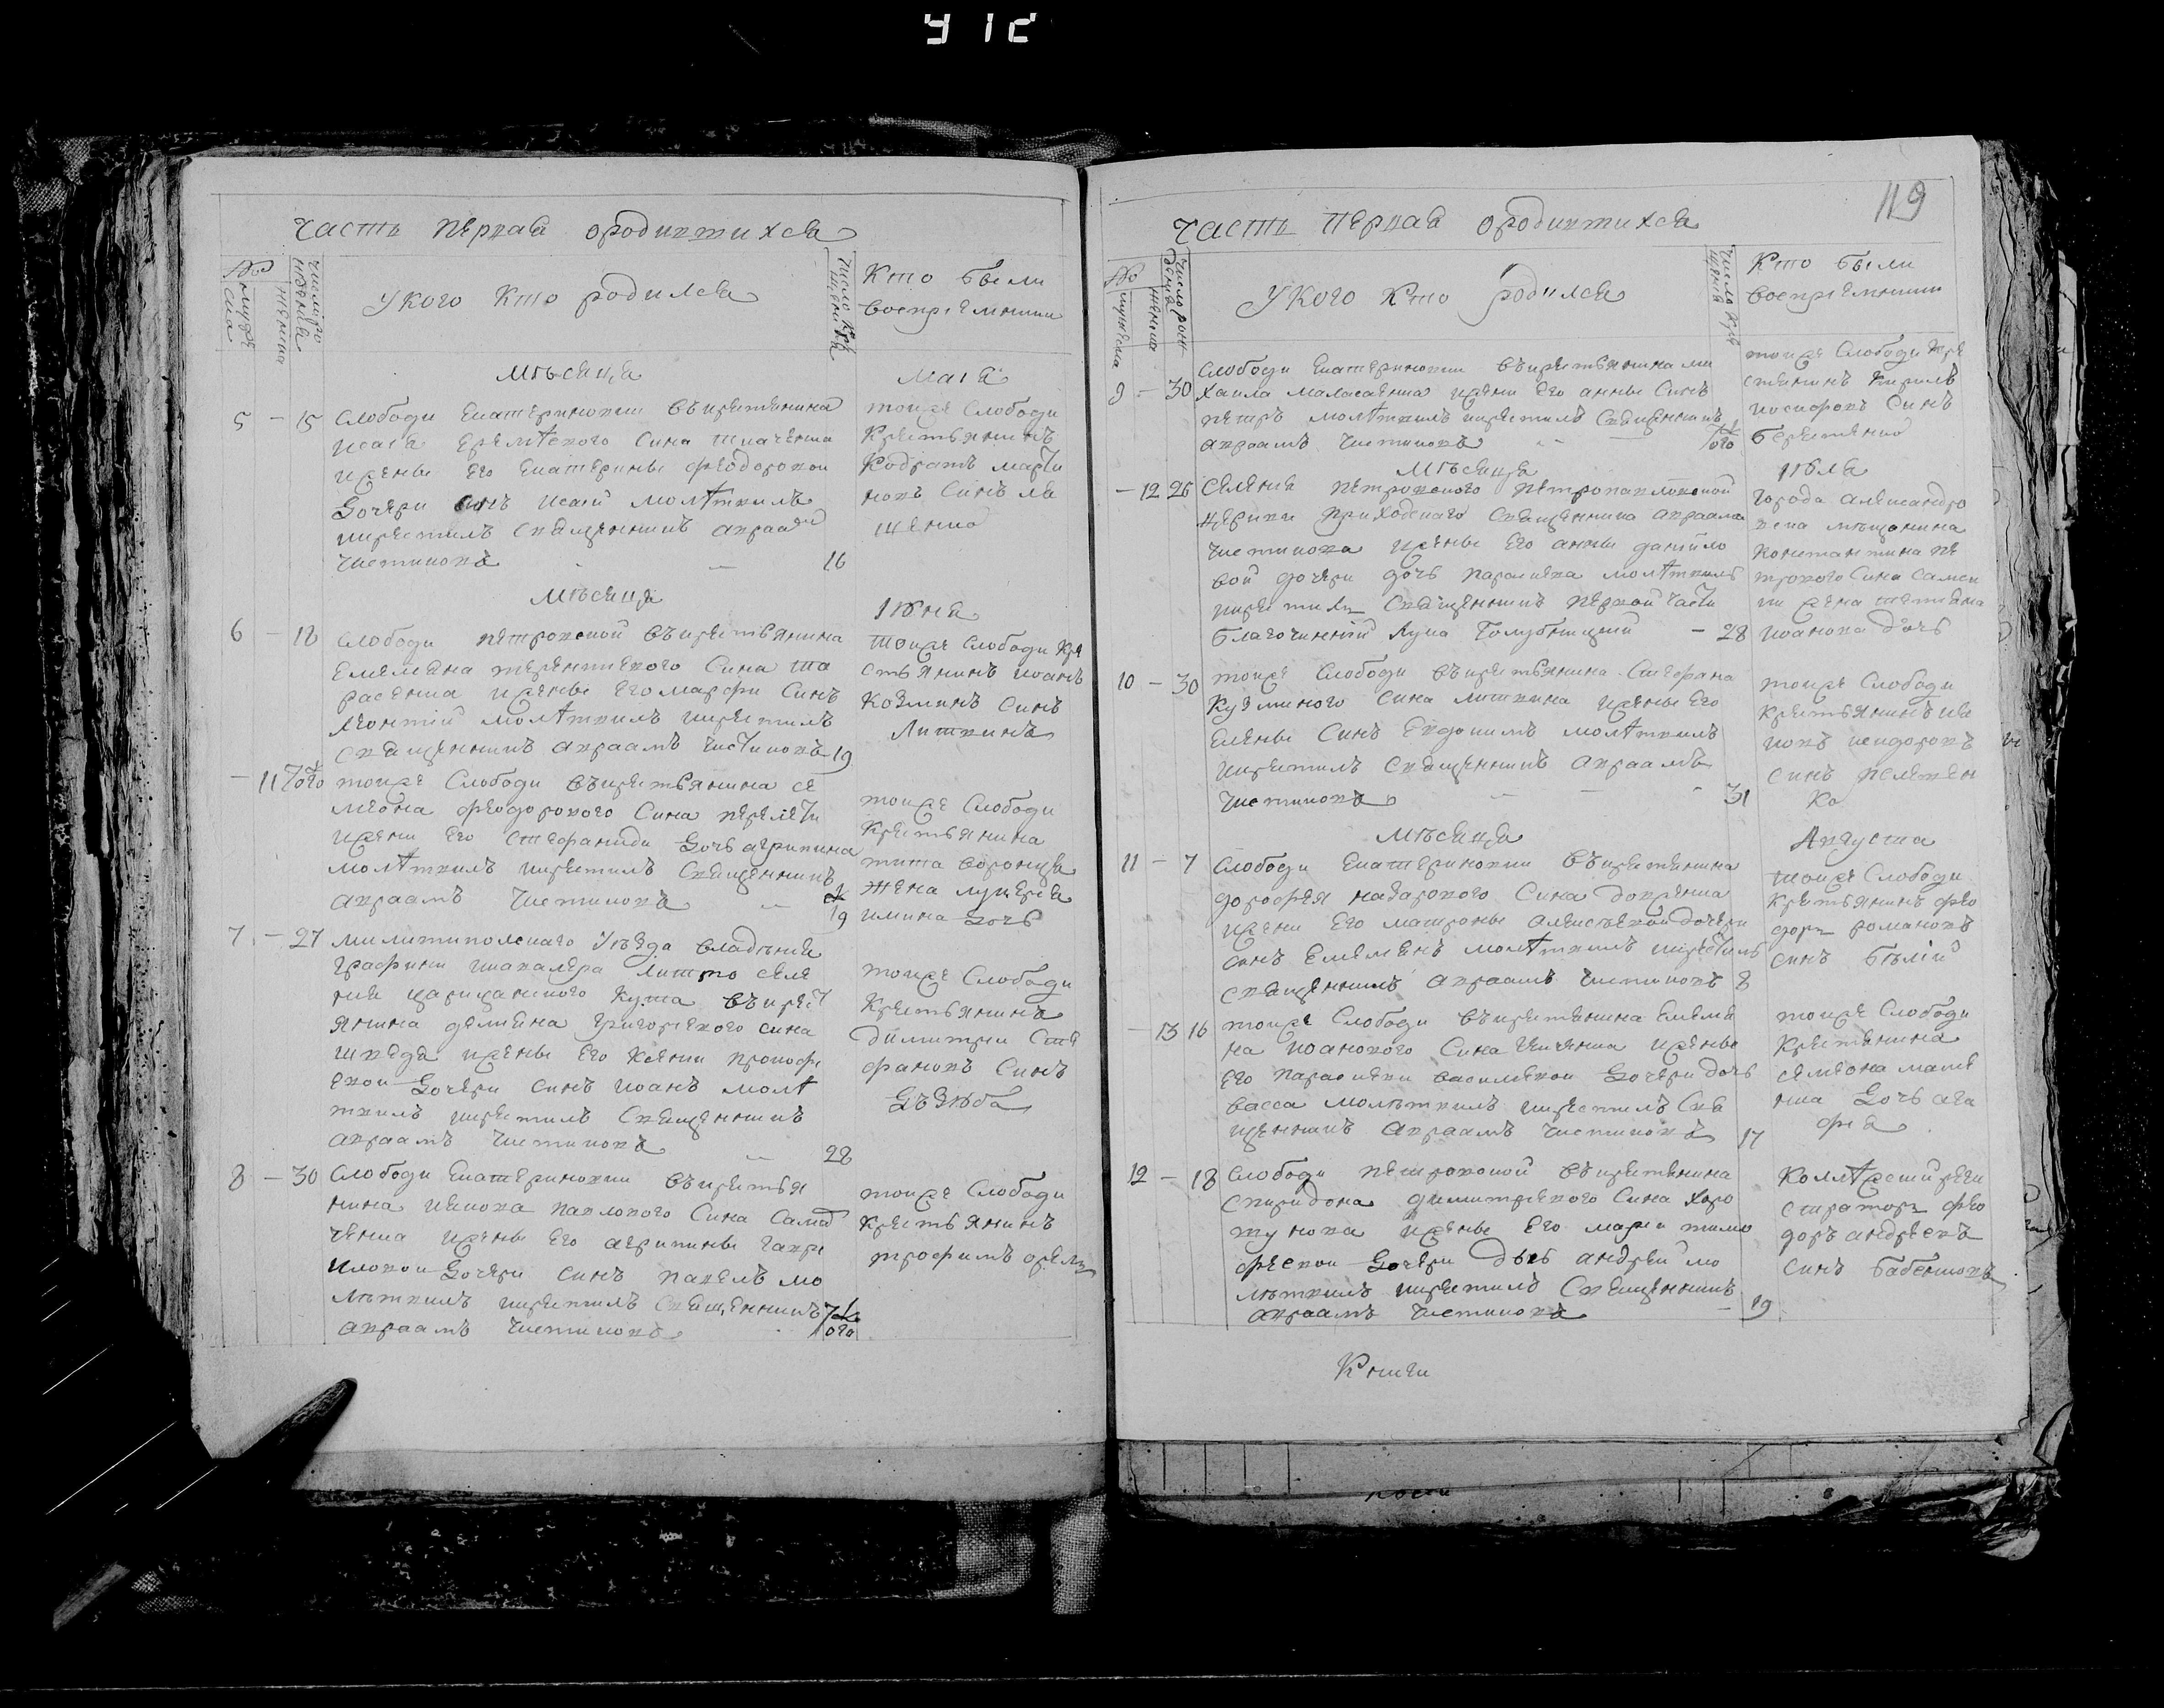 912
часть первая ородившихся
№
мужеска
женска
число рождения
Укого Кто родился
число крещения
Кто были
воспріемники
Мѣсяца
Маія
5 - 15 Слободи Екатериновки въ крестянина
Исаія Еремѣевого Сина Ткаченка
жены его Екатерины феодоровои
Дочери синъ Исаій молитвилъ
икрестилъ Священникъ Авраамъ
Чистиковъ - 16
тоиже Слободи
Крестьянинъ
Кодратъ марти
новъ Синъ ля
щенко
Мѣсяца
Іюня
6 - 18 Слободи петровской въ крестьянина
Емеляна терентиевого Сина та
расенка жены его марфи Синъ
леонтій молитвилъ икрестилъ
Священникъ Авраамъ Чистиковъ 19
Тоиже Слободи Кре
стьянинъ иоанъ
Козминъ Синъ
Литвинъ
- 11 того тоиже Слободи въ крестьянина се
меона феодорового Сина
жени его Стефаниди Дочь агрипина
молитвилъ икрестилъ Священникъ
авраамъ Чистиковъ - 19
тоиже Слободи
Крестьянина
тита воронця
жена лукерея
Дочь
7 - 27 милитиполскаго Уѣзда владѣния
графини Литто селе
ния царицанского Кута въ крест
янина демяна григориевого сина
шведа жены его Ксении прокофи
евои Дочери синъ иоанъ моли
твилъ икрестилъ Священникъ
авраамъ Чистиковъ - 28
тоиже Слободи
Крестьянинъ
Димитрии Сте
фановъ Синъ
Дзюба
8 - 30 Слободи Екатериновки въ крестья
нина иякова павлового Сина Само
ченка жены его агрипины гаври
иловои Дочери синъ павелъ мо
литвилъ икрестилъ Священникъ того
авраамъ Чистиковъ
тоиже Слободи
Крестьянинъ
трофимъ орелъ
119
часть первая ородившихся
№
мужеска
женска
число рождения
Укого Кто родился
число крещения
Кто были
воспріемники
9 - 30 Слободи Екатериновки въ крестьянина ми
хаила Маласаенка жени его анны Синъ
петръ молитвилъ икрестилъ Священникъ
авраамъ Чистиковъ - того
тоиже Слободи Кре
стянинъ Кирилъ
иосифовъ Синъ
Мѣсяца
Іюля
- 12 26 Селения петровского петропавловской
церкви приходского Священника авраама
Чистикова жены его анны данило
вой дочери дочь параскева молитвилъ
икрестилъ Священникъ первой части
благочинній Лука Голубницкий - 28
города александро
вска мѣщанина
Константина пе
трового Сина
жена татіана
иоанова дочь
10 - 30 тоиже Слободи въ крестьянина Стефана
Кузминого Сина литвина жены его
Елены Синъ Евдокимъ молитвилъ
икрестилъ Священникъ авраамъ
Чистиковъ - 31
тоиже Слободи
Крестьянинъ ия
ковъ исидоровъ
синъ
ко
Мѣсяца
Августа
11 - 7 Слободи Екатериновки въ крестянина
дорофея назарового Сина Довженка
жени его матроны алексѣевой дочери
синъ Емелянъ молитвилъ икрестилъ
Священникъ авраамъ Чистиковъ 8
тоиже Слободи
Крестьянинъ фео
доръ романовъ
синъ Бѣлій
- 13 16 тоиже Слободи въ крестянина Емеля
на иоанового Сина жены
его параскеви василевои Дочери дочь
васса молитвилъ икрестилъ Свя
щенникъ авраамъ Чистиковъ 17
тоиже Слободи
Крестянина
семеона
Дочь ага
фия
12 - 18 Слободи петровской въ крестянина
Спиридона димитриевого Сина хоро
тунова жены его марии тимо
феевои Дочери андрей мо
литвилъ икрестилъ Священникъ
авраамъ Чистиковъ - 19
Колежский реги
страторъ фео
доръ андреевъ
синъ бабенковъ
Книги